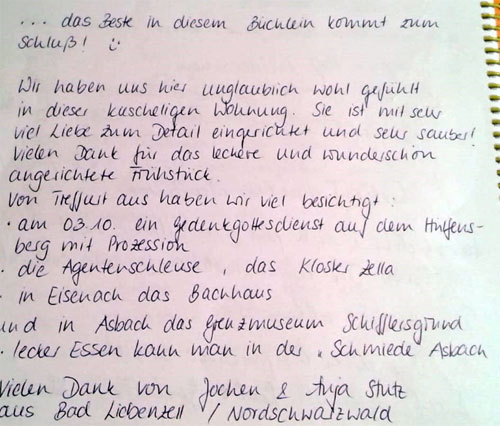 ... das Beste in diesem Büchlein kommt zum
Schluß! ü
Wir haben uns hier unglaublich wohl gefühlt
in dieser kuscheligen Wohnung. Sie ist mit sehr
viel Liebe zum Detail eingerichtet und sehr sauber!
Vielen Dank für das leckere und wunderschön
angerichtete Frühstück.
Von Treffurt aus haben wir viel besichtigt:
• am 03.10. ein Gedenkgottesdienst auf dem Hülfens-
berg mit Prozession
• die Agentenschleuse, das Kloster Zella
• in Eisenach das Bachhaus
und in Asbach das Grenzmuseum Schifflersgrund
• lecker Essen kann man in der "Schmiede" Asbach
Vielen Dank von Jochen & Anja Stutz
aus Bad Liebenzell / Nordschwarzwald